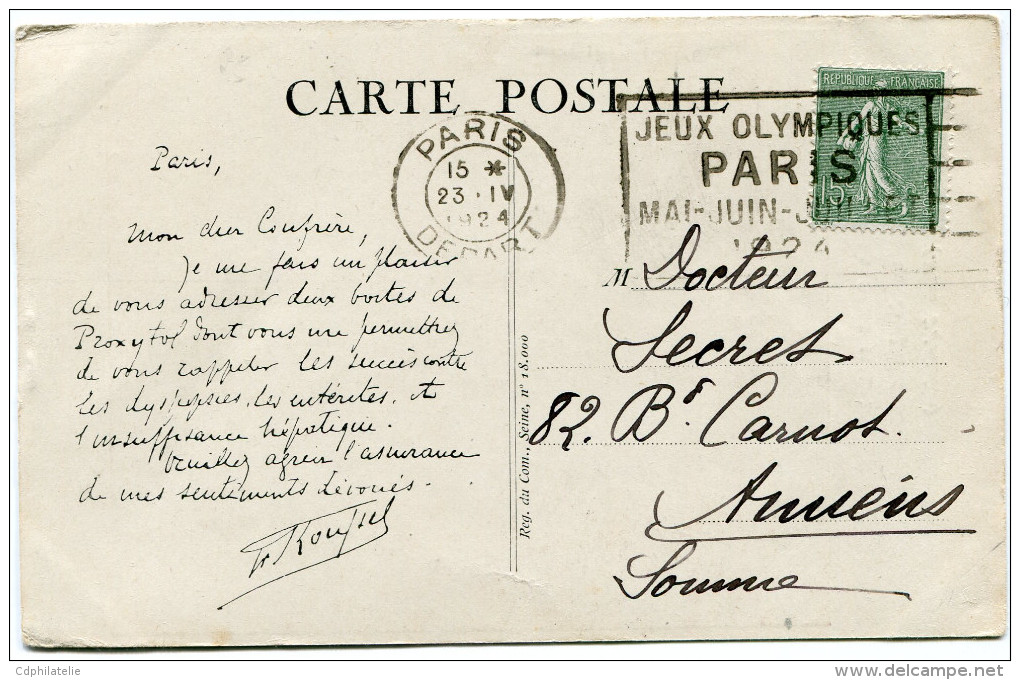 CARTE POSTALE
REPUBLIQUE FRANÇAISE
15c
PARIS
15 *
23 · IV
1924
DEPART
JEUX OLYMPIQUES
PARIS
MAI-JUIN-JUILLET
1924
Paris,
Mon cher Confrère,
Je me fais un plaisir
de vous adresser deux boites de
Proxytol dont vous me permettrez
de vous rappeler les succès contre
les dyspepsies, les entérites, et
l'insuffisance hépatique.
Veuillez agréer l'assurance
de mes sentiments dévoués.
Reg. du Com., Seine, nº 18.000
M Docteur
Secret
82. Bd. Carnot.
Amiens
Somme
Cdphilatelie
www.delcampe.net